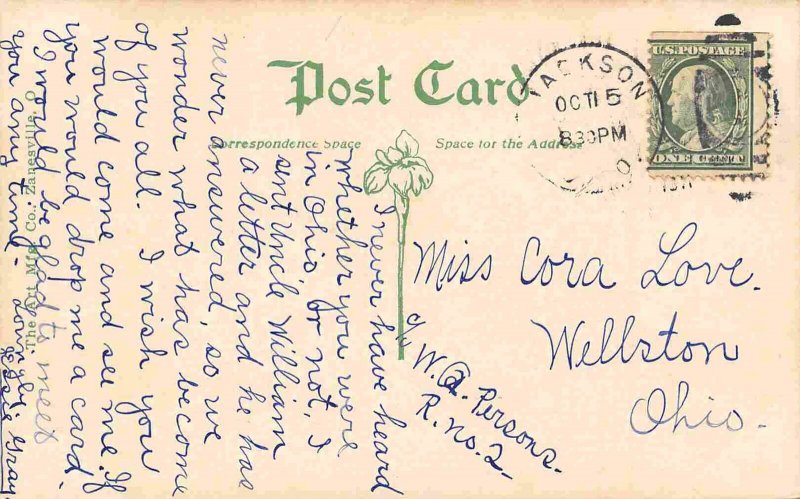 Post Card
Correspondence Space
Space for the Address
The Art Mfg. Co., Zanesville, O.
JACKSON
OCT 15
8:30PM
O
U.S. POSTAGE
ONE CENT
I never have heard
whether you were
in Ohio, or not, I
sent Uncle William
a letter and he has
never answered, so we
wonder what has become
of you all. I wish you
would come and see me. If
you would drop me a card
I would be glad to meet
you any time.
Lovingly.
Gray.
Miss Cora Love.
Wellston
Ohio.
c/o W. A. Persons.
R. no. 2.